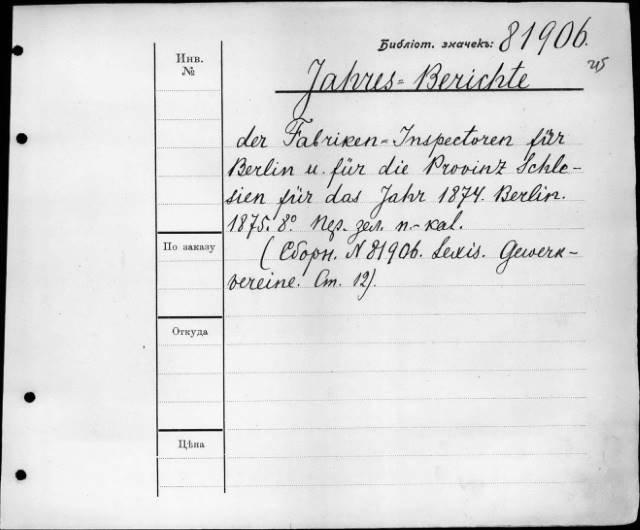 Библіот. значекъ: 81906.
Инв.
№
Jahres=Berichte
der Fabriken=Inspectoren für
Berlin u. für die Provinz Schle-
sien für das Jahr 1874. Berlin.
1875. 8° Пер. зел. п.-кал.
(Сборн. N 81906. Lexis. Gewerk-
vereine. Ст. 12).
По заказу
Откуда
Цѣна